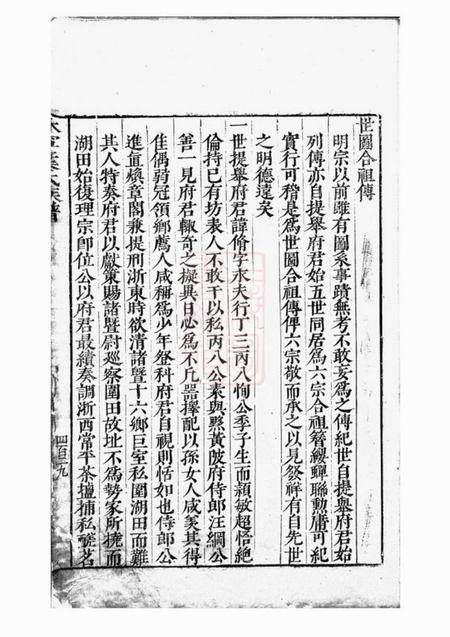 世圖合祖傳
明宗以前雖有圖系事蹟無考不敢妄爲之傳紀世自提舉府君始
列傳亦自提舉府君始五世同居爲六宗合祖簪纓蟬聯勳庸可紀
實行可稽是爲世圖合祖傳俾六宗敬而承之以見發祥有自先世
之明德遠矣
一世提舉府君諱脩字永夫行丁三丙八恂公季子生而穎敏超悟絶
倫持已有坊表人不敢干以私丙八公素與黟黄陂府侍郎汪綱公
善一見府君輙奇之擬異日必爲不凡器擇配以孫女人咸羨其得
佳偶弱冠領鄉薦人咸稱爲少年登科府君自視則恬如也侍郎公
進直煥章閣兼提刑浙東時欲清諸暨十六鄉巨室私圍湖田而難
其人特奏府君以獻東賜諸暨尉廵察圍田故址不爲勢家所撓而
湖田始復理宗卽位公以府君最績奏調浙西常平茶塩捕私𪉟名
四百九